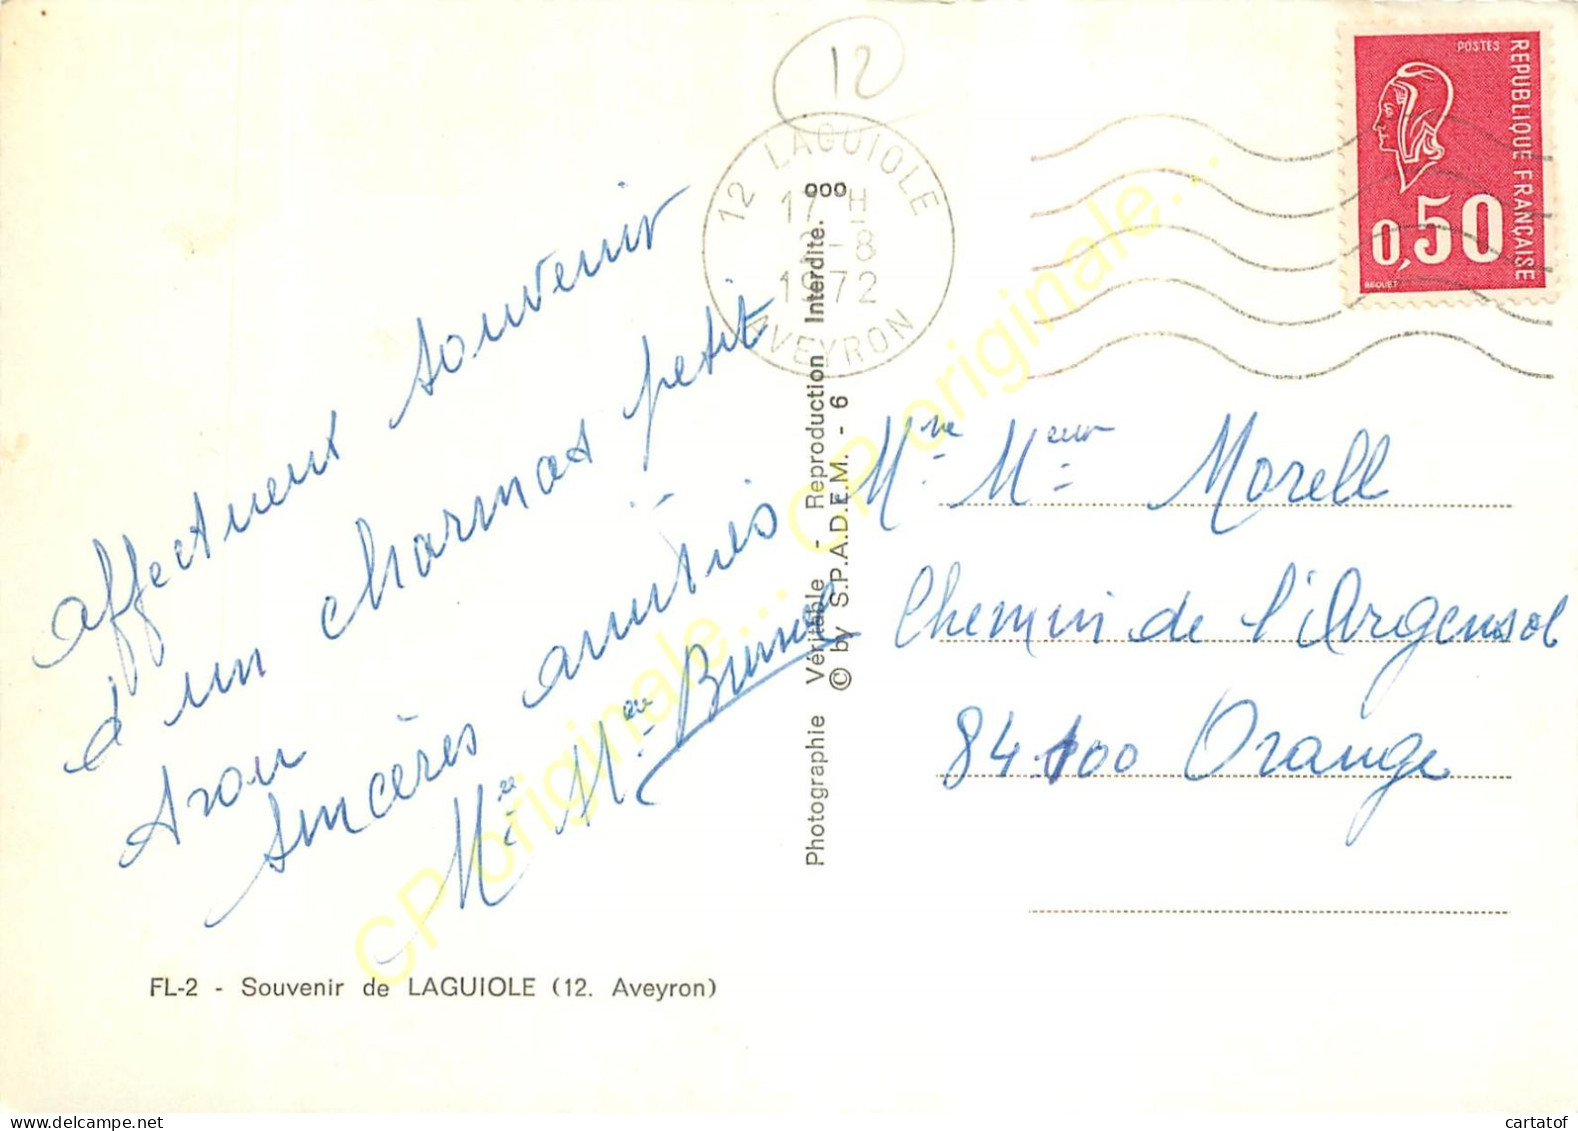 12
12 LAGUIOLE
17 H
2-8
1972
AVEYRON
POSTES
REPUBLIQUE FRANÇAISE
0,50
BEQUET
affectueux souvenir
d'un charmant petit
trou
sincères amitiés
Mr Me Brunel
Mme Meur Morell
Chemin de l'Argensol
84100 Orange
Photographie Véritable - Reproduction Interdite.
© by S.P.A.D.E.M. - 6
FL-2 - Souvenir de LAGUIOLE (12. Aveyron)
CP originale... CP originale...
delcampe.net
cartatof